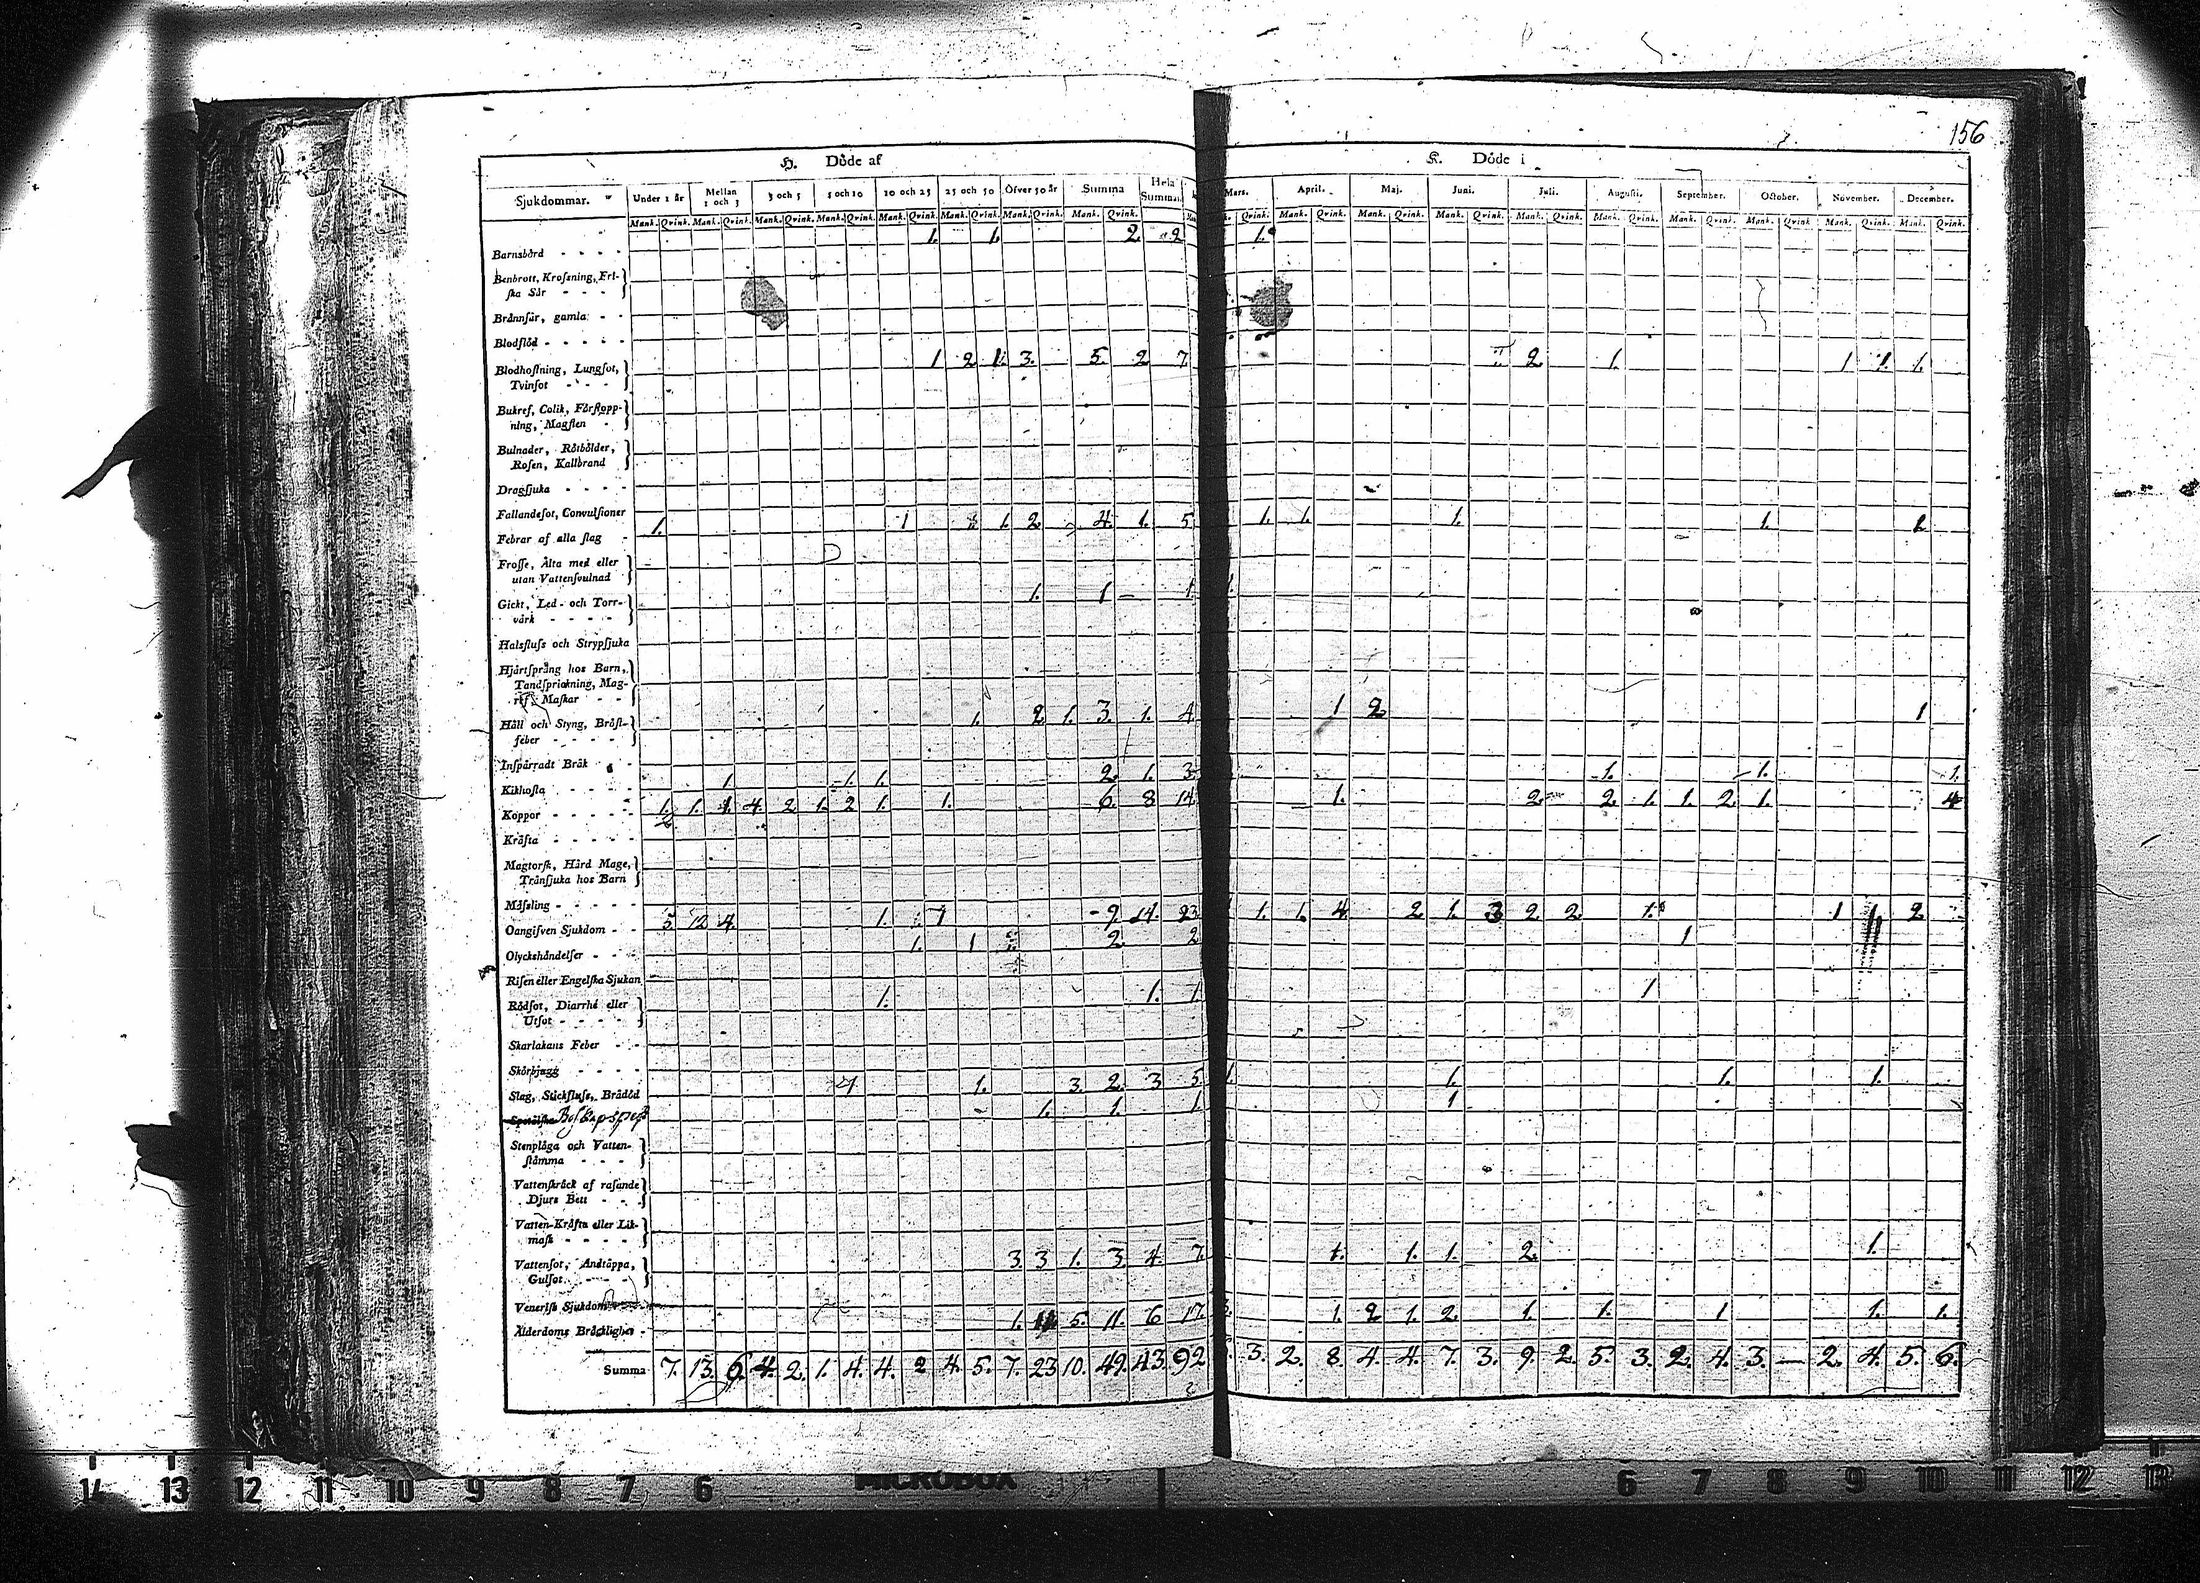 156
H. Döde af
K. Döde i
Sjukdommar. Under 1 år Mellan 1 och 3 3 och 5 5 och 10 10 och 25 25 och 50 Öfver 50 år Summa Hela Summan
Mars. April. Maj. Juni. Juli. Augusti. September. October. November. December.
Mank. Qvink. Mank. Qvink. Mank. Qvink. Mank. Qvink. Mank. Qvink. Mank. Qvink. Mank. Qvink. Mank. Qvink.
Qvink. Mank. Qvink. Mank. Qvink. Mank. Qvink. Mank. Qvink. Mank. Qvink. Mank. Qvink. Mank. Qvink. Mank. Qvink. Mank. Qvink.
Barnsbörd 1. 1. 2. 2 1.
Benbrott, Krossning, Fri-
ska Sår
Brännsår, gamla
Blodflöd
Blodhostning, Lungsot, 1 2 1. 3. 5. 2 7. 2. 1. 1 1. 1.
Tvinsot
Bukref, Colik, Förstopp-
ning, Magsten
Bulnader, Rötbölder,
Rosen, Kallbrand
Dragsjuka
Fallandesot, Convulsioner
Febrar af alla slag 1. 1 1. 2. 4. 1. 5. 1. 1. 1. 1. 1.
Frosse, Älta med eller
utan Vattensvulnad
Gickt, Led- och Torr- 1. 1 1.
värk
Halsfluss och Strypsjuka
Hjärtsprång hos Barn,
Tandsprickning, Mag-
ref, Maskar
Håll och Styng, Bröst- 1. 2 1. 3. 1. 4. 1 2 1
feber
Inspärradt Bråk
Kikhosta 1 1. 1. 2. 1. 3 1. 1. 1.
Koppor 1. 1. 1 4. 2 1. 2 1. 1. 6. 8 14. 1. 2. 2. 1. 1. 2. 1. 4
Kräfta
Magtorsk, Hård Mage,
Tränsjuka hos Barn
Mässling
Oangifven Sjukdom 5. 12 4. 1. 1 9. 14. 23 1. 1. 4. 2. 1. 3 2. 2. 1. 1 1. 2
Olyckshändelser 1. 1 2. 2 1
Risen eller Engelska Sjukan
Rödsot, Diarrhé eller 1. 1. 1 1
Utsot
Skarlakans Feber
Skörbjugg
Slag, Stickfluss, Brådöd 1. 3. 2. 3 5. 1. 1. 1. 1.
Spetälska Boskapspest 1. 1. 1. 1
Stenplåga och Vatten-
stämma
Vattenskräck af rasande
Djurs Bett
Vatten-Kräfta eller Lik-
mask
Vattensot, Andtäppa, 3 3 1. 3. 4. 7. 1. 1. 1. 2. 1.
Gulsot
Venerisk Sjukdom
Ålderdoms Bräcklighet 1. 11 5. 11. 6 17. 1. 2 1. 2. 1. 1. 1 1. 1.
Summa 7. 13. 6. 4. 2. 1. 4. 4. 2 4. 5. 7. 23 10. 49. 43. 92 3. 2. 8. 4. 4. 7. 3. 9. 2. 5. 3. 2. 4. 3. — 2. 4. 5. 6.
14 13 12 11 10 9 8 7 6 MICROBOX 6 7 8 9 10 11 12 13